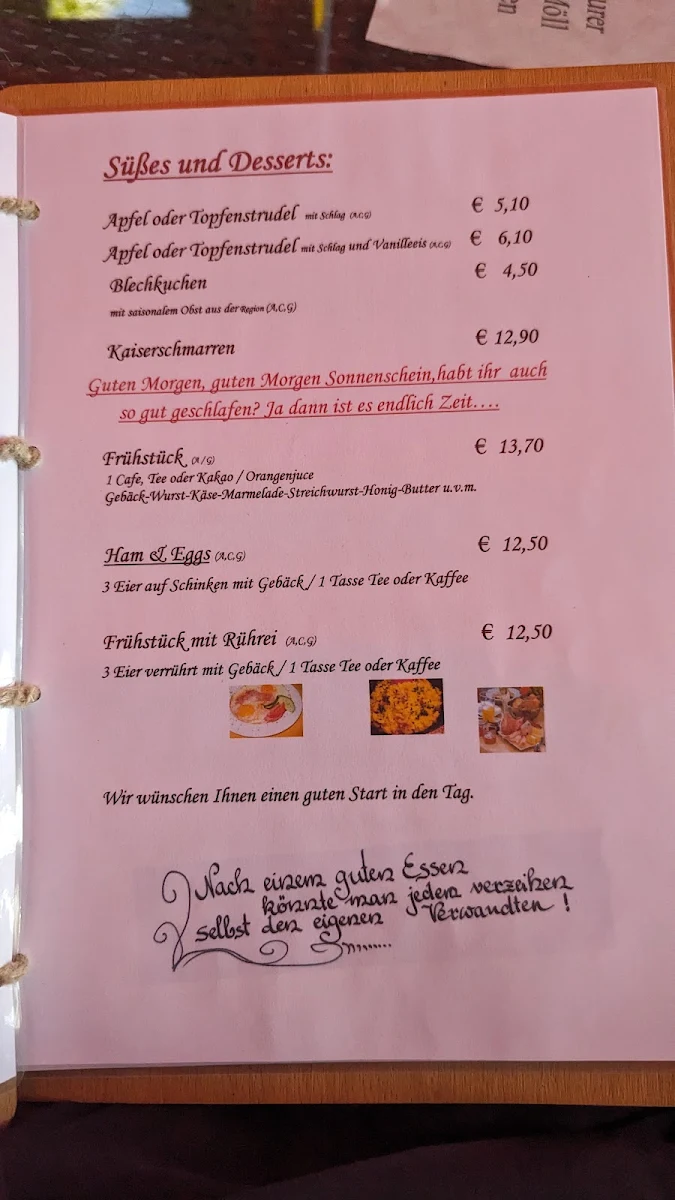 urer
Möll
en
Süßes und Desserts:
Apfel oder Topfenstrudel mit Schlag (A,C,G) € 5,10
Apfel oder Topfenstrudel mit Schlag und Vanilleeis (A,C,G) € 6,10
Blechkuchen € 4,50
mit saisonalem Obst aus der Region (A,C,G)
Kaiserschmarren € 12,90
Guten Morgen, guten Morgen Sonnenschein,habt ihr auch
so gut geschlafen? Ja dann ist es endlich Zeit….
Frühstück (A/G) € 13,70
1 Cafe, Tee oder Kakao / Orangenjuce
Gebäck-Wurst-Käse-Marmelade-Streichwurst-Honig-Butter u.v.m.
Ham & Eggs (A,C,G) € 12,50
3 Eier auf Schinken mit Gebäck / 1 Tasse Tee oder Kaffee
Frühstück mit Rührei (A,C,G) € 12,50
3 Eier verrührt mit Gebäck / 1 Tasse Tee oder Kaffee
Wir wünschen Ihnen einen guten Start in den Tag.
Nach einem guten Essen
könnte man jedem verzeihen
selbst den eigenen Verwandten !